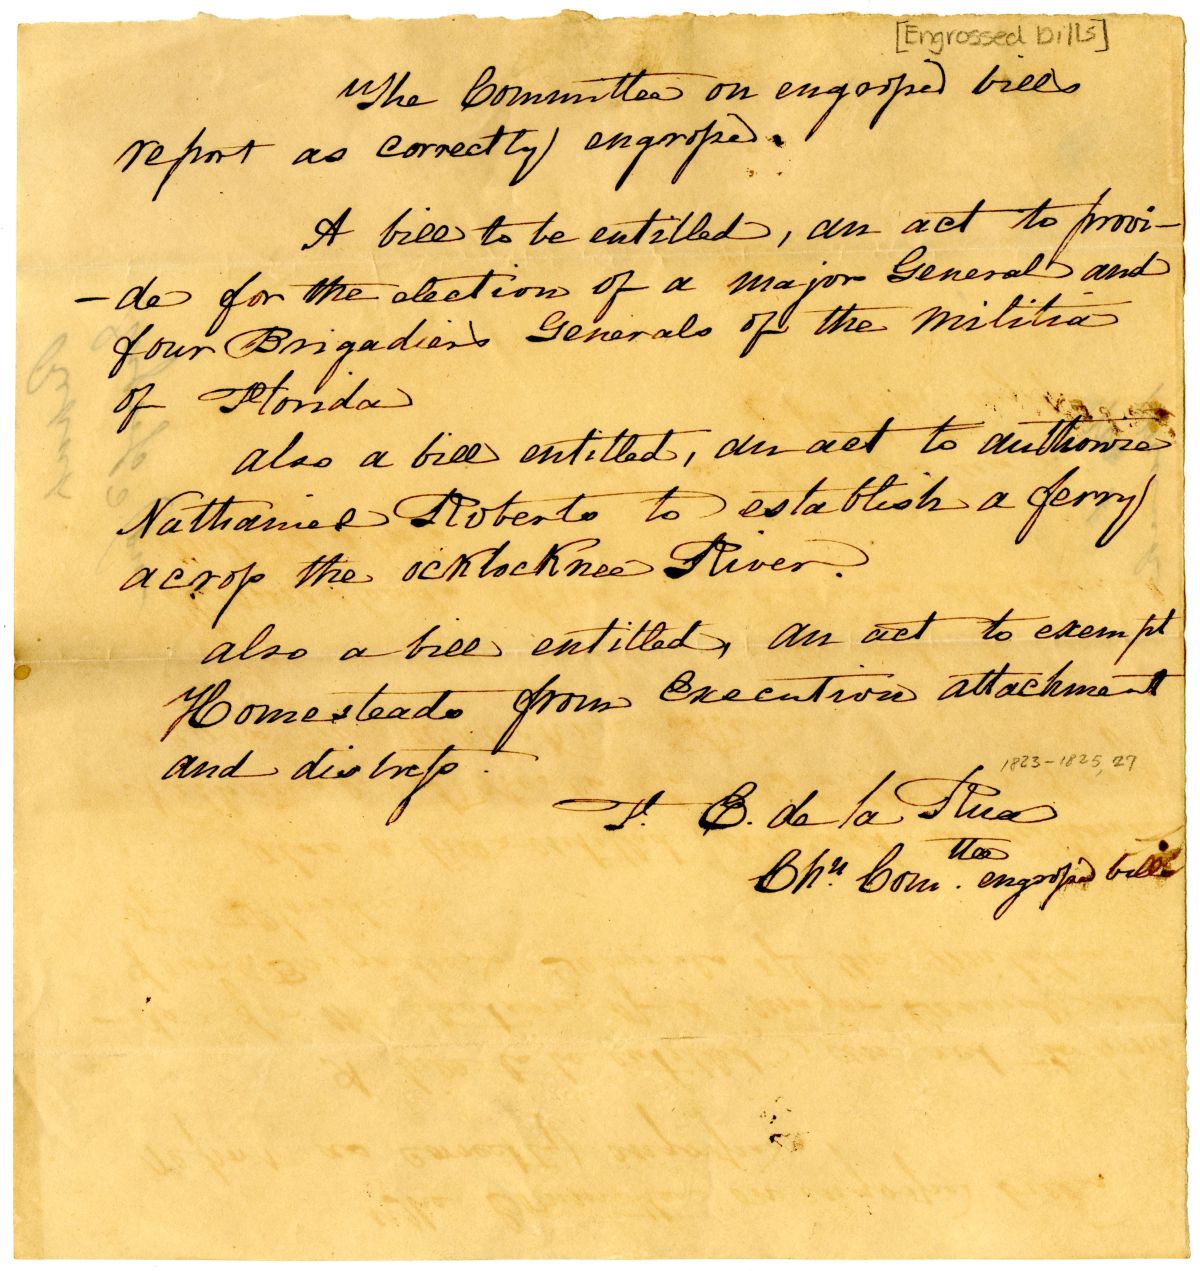 [Engrossed bills]
The Committee on engrossed bills
report as correctly engrossed.
A bill to be entitled, an act to provi-
-de for the election of a major General and
four Brigadiers Generals of the militia
of Florida
also a bill entitled, an act to authorize
Nathaniel Roberts to establish a ferry
across the ocklocknee River.
also a bill entitled, an act to exempt
Homesteads from Execution attachment
and distress.
1823-1825, 27
F. E. de la Rua
Chn. Comttee. engrossed bills